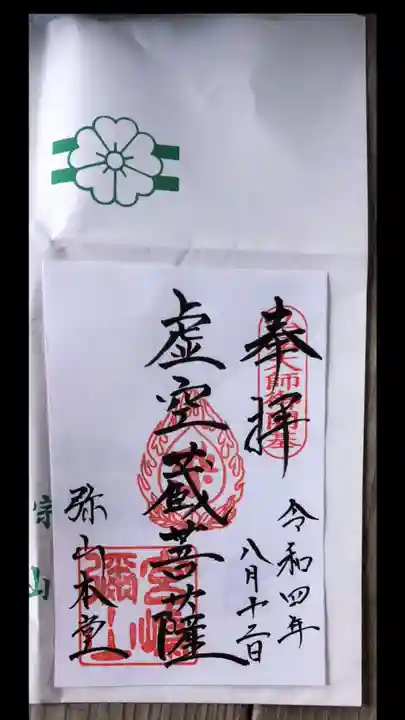 奉拝
令和四年
八月十二日
虚空蔵菩薩
弥山本堂
宮嶋
彌山
宗
山